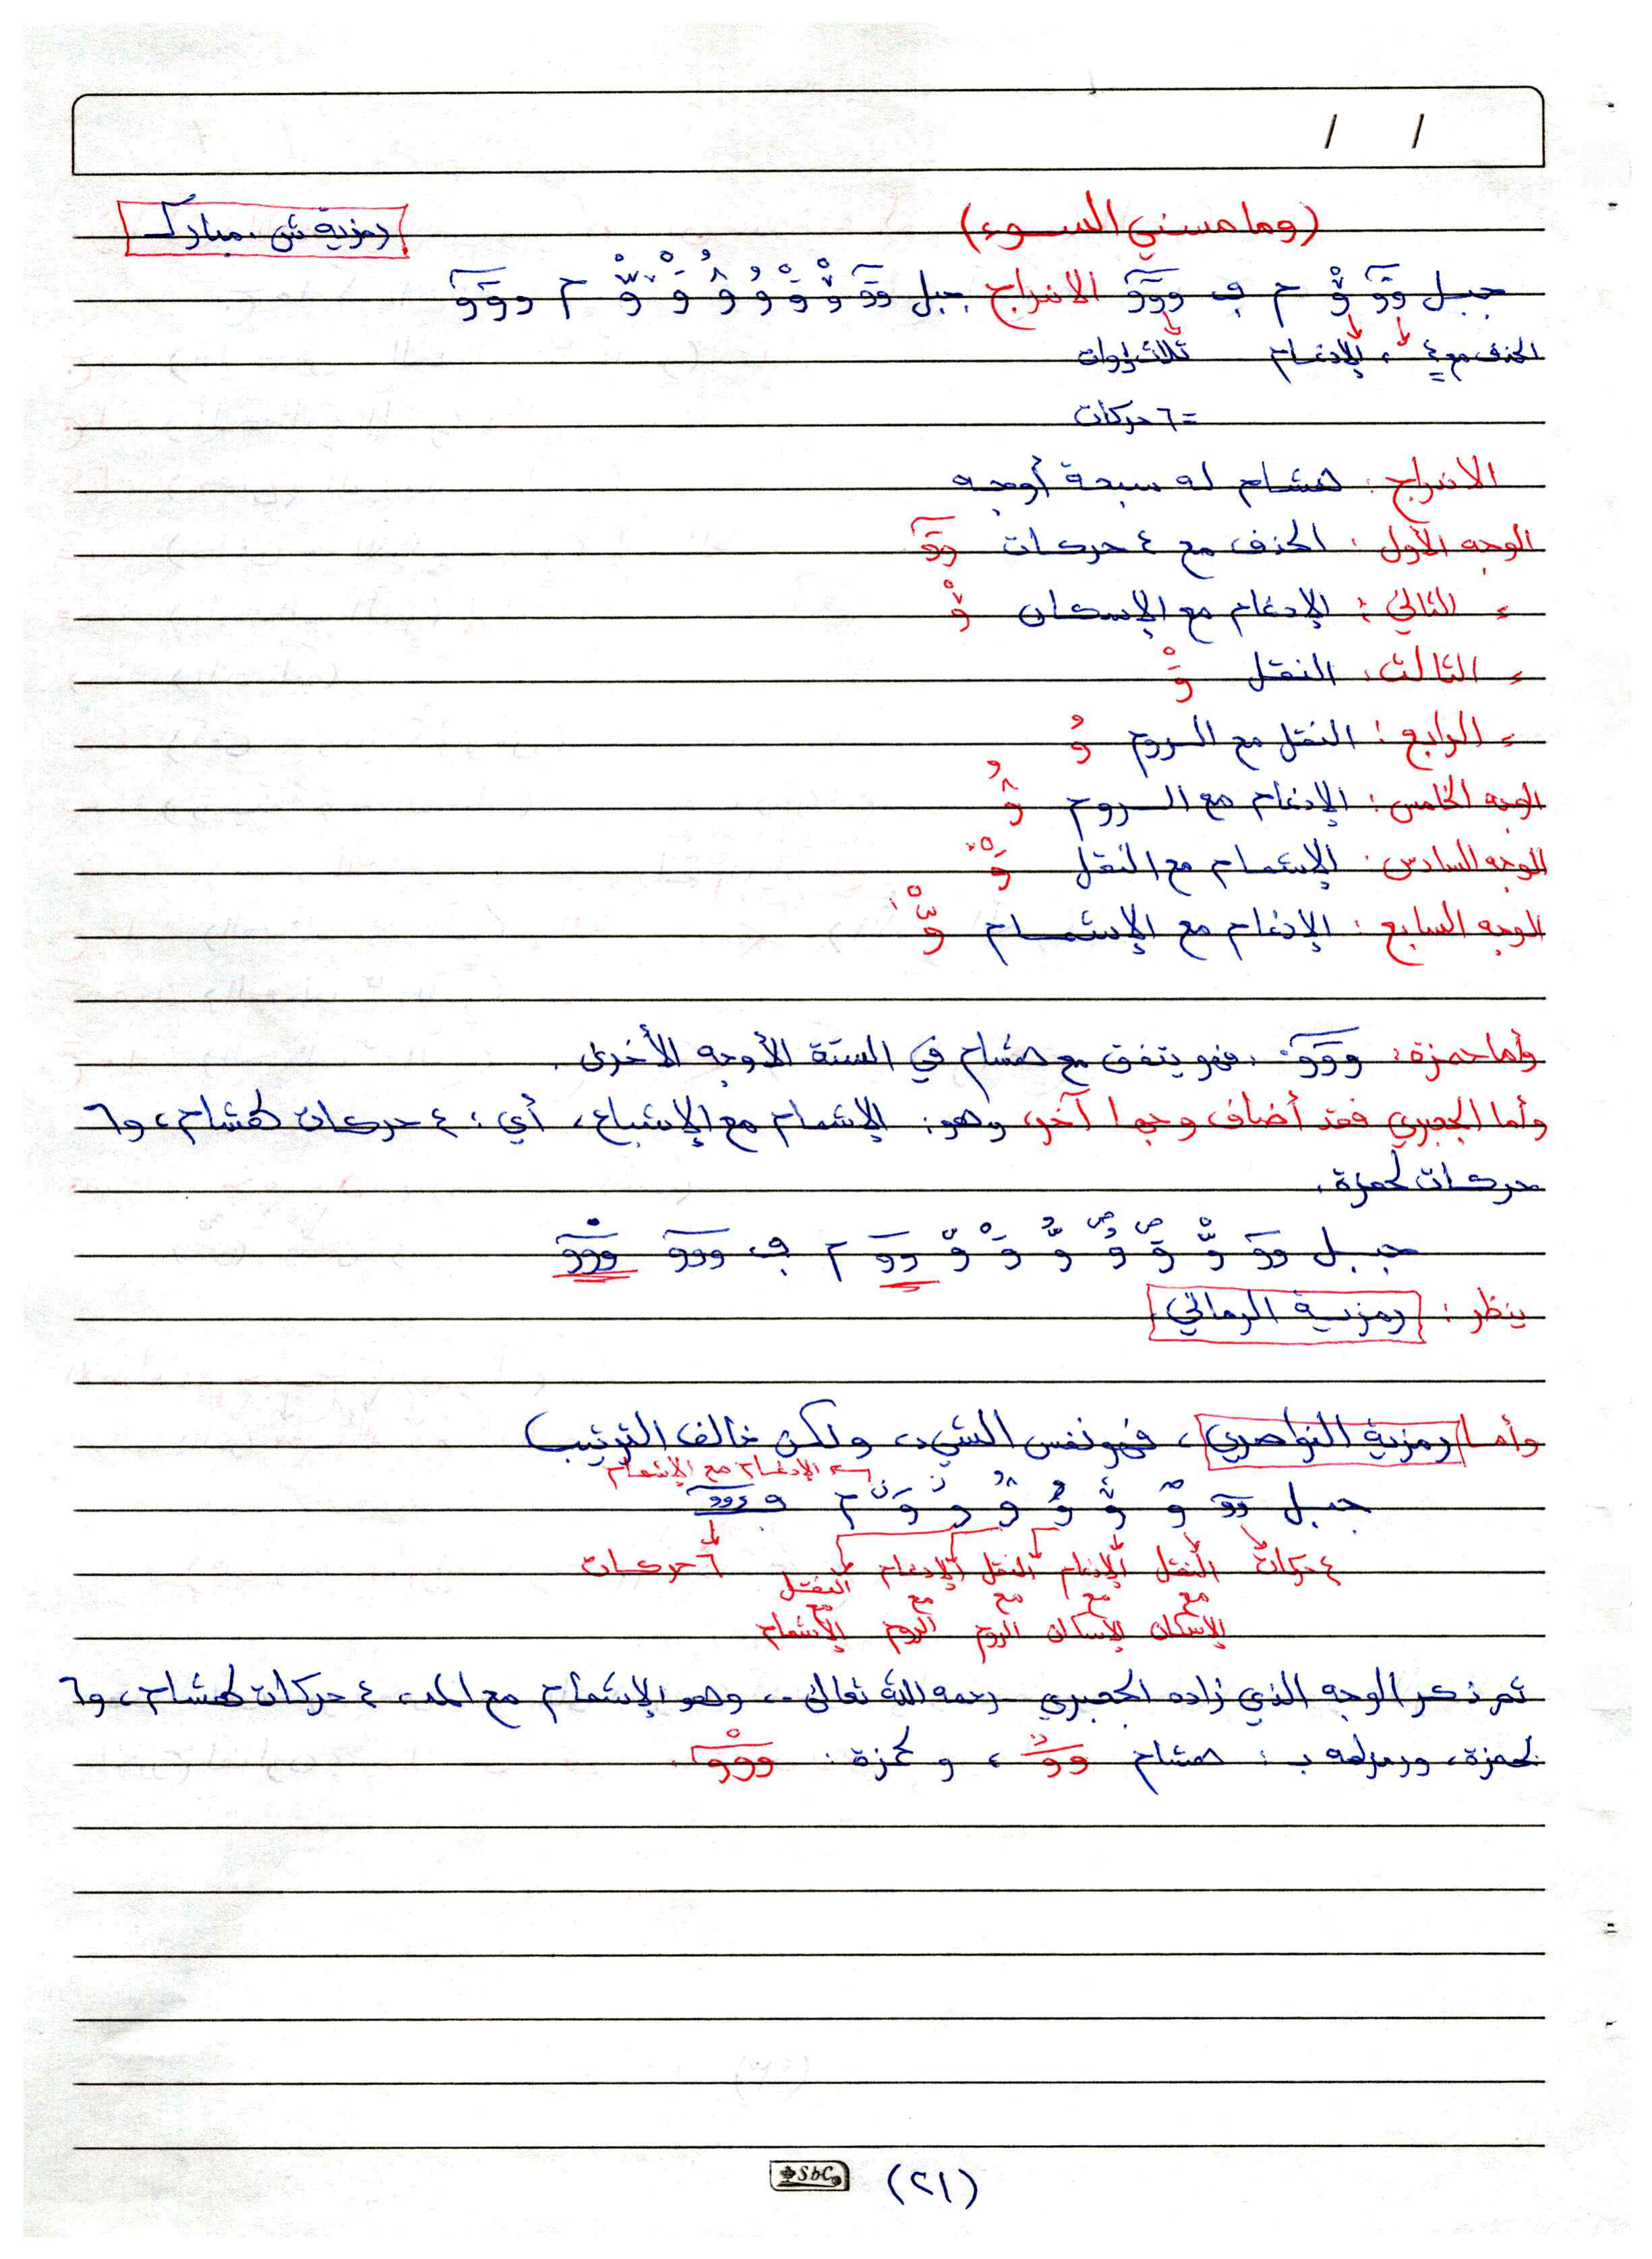 / /
(وما مسني السوء) رمزية ش. مبارك
جبل وَوَ وّْ م ف وووَ الاندراج جبل
الحذف مع ٤ ، الإدغام ثلاث واوات
= ٦ حركات
الاندراج : هشام له سبعة أوجه
الوجه الأول : الحذف مع ٤ حركات وَوَ
= الثاني : الإدغام مع الإسكان وّْ
= الثالث : النقل وَْ
= الرابع : النقل مع الروم وُ
الوجه الخامس : الإدغام مع الروم وُ
الوجه السادس : الإشمام مع النقل وَْ
الوجه السابع : الإدغام مع الإشمام وّْ
وأما حمزة : وووَ ، فهو يتفق مع هشام في الستة الأوجه الأخرى .
وأما الجعبري فقد أضاف وجها آخر، وهو : الإشمام مع الإشباع، أي : ٤ حركات لهشام، و٦
حركات لحمزة .
جبل وو م ف ووو ووو
ينظر : رمزية الرمالي
وأما رمزية النواصري ، فهو نفس الشيء، ولكن خالف الترتيب
الإدغام مع الإشمام
جبل وو م ف ووو
٤ حركات النقل الإدغام النقل الإدغام النقل ٦ حركات
مع مع مع مع مع
الإسكان الإسكان الروم الروم الإشمام
ثم ذكر الوجه الذي زاده الجعبري - رحمه الله تعالى -، وهو الإشمام مع المد، ٤ حركات لهشام، و٦
لحمزة، ورمز له بـ : هشام وو ، و حمزة : ووو .
SbC (٢١)